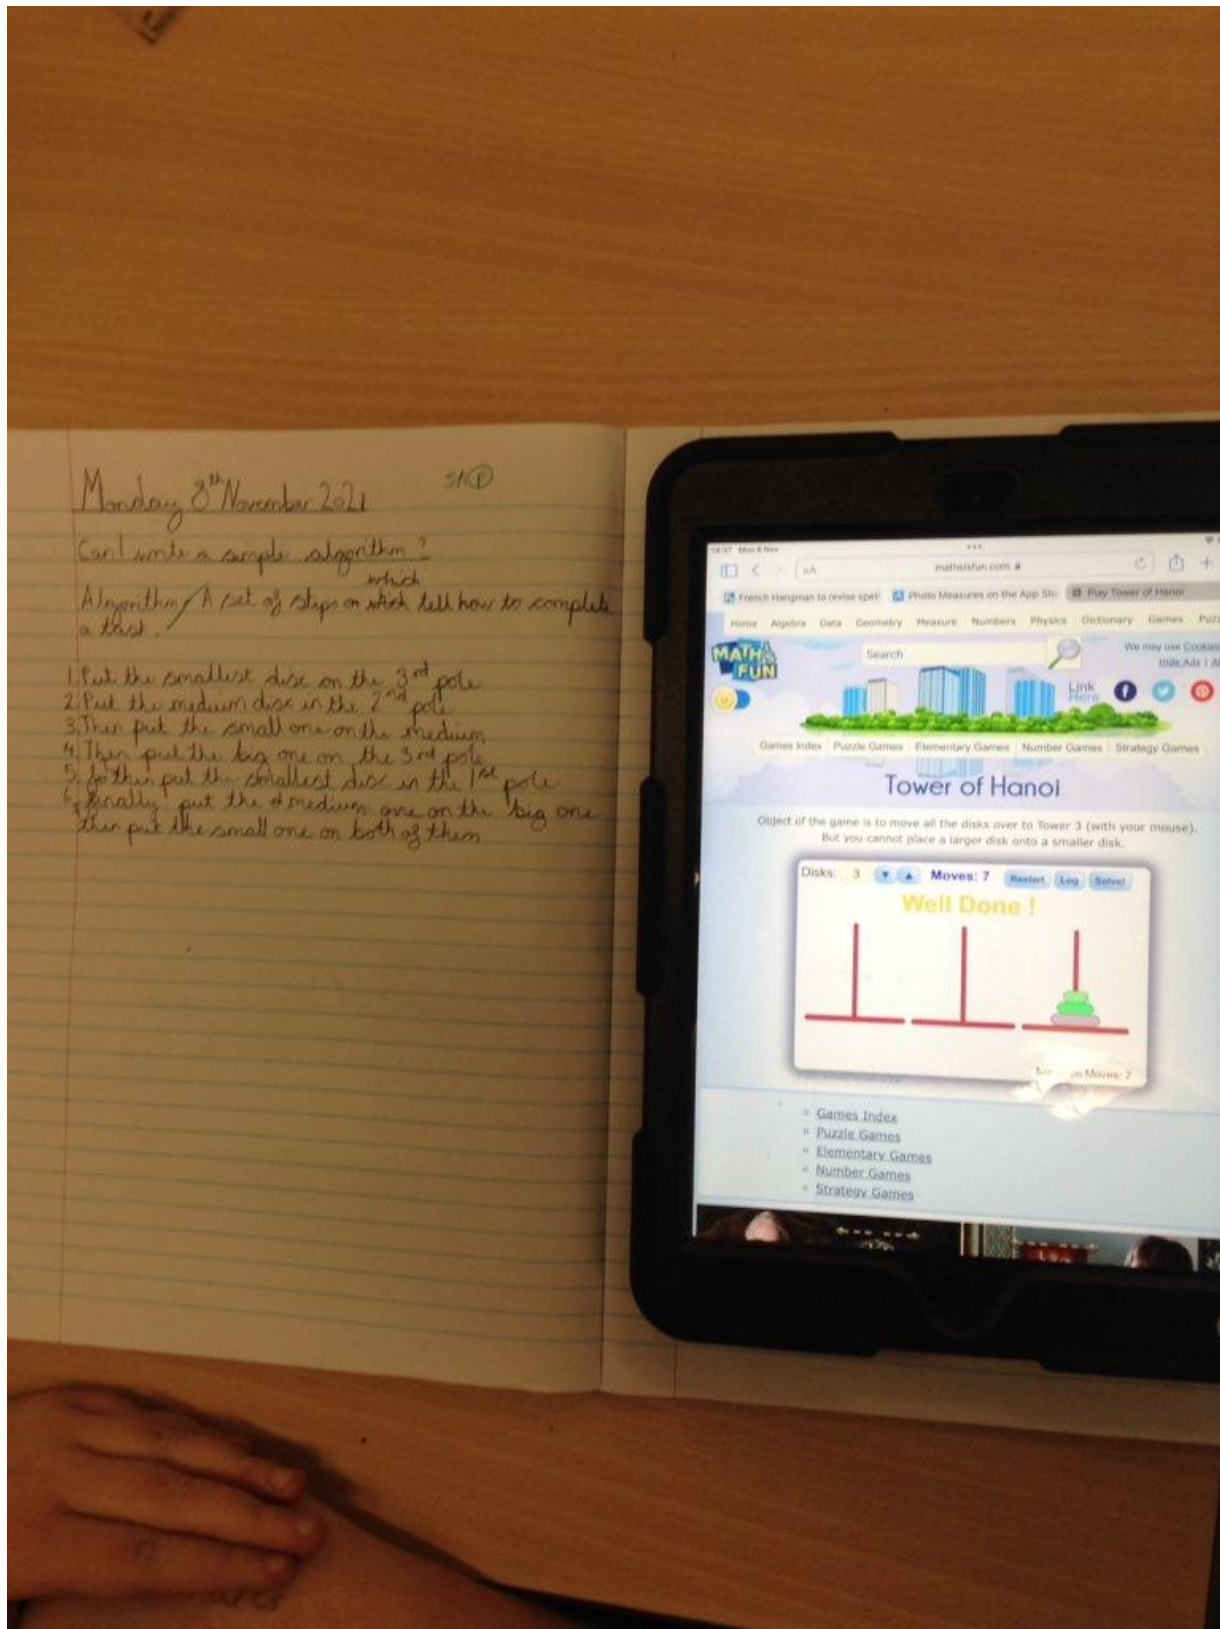 Monday 8th November 2021
Can I write a simple algorithm?
which
Algorithm / A set of steps or which tell how to complete
a task.
1. Put the smallest disc on the 3rd pole
2. Put the medium disc in the 2nd pole
3. Then put the small one on the medium
4. Then put the big one on the 3rd pole
5. So then put the smallest disc in the 1st pole
6. Finally put the medium one on the big one
then put the small one on both of them
Mon 8 Nov
AA mathsisfun.com
French Hangman to revise spell Photo Measures on the App Sto Play Tower of Hanoi
Home Algebra Data Geometry Measure Numbers Physics Dictionary Games Puzz
MATHS FUN
Search
We may use Cookies
Hide Ads
Link Here
Games Index Puzzle Games Elementary Games Number Games Strategy Games
Tower of Hanoi
Object of the game is to move all the disks over to Tower 3 (with your mouse).
But you cannot place a larger disk onto a smaller disk.
Disks: 3 Moves: 7 Restart Log Solve!
Well Done !
Moves: 7
Games Index
Puzzle Games
Elementary Games
Number Games
Strategy Games